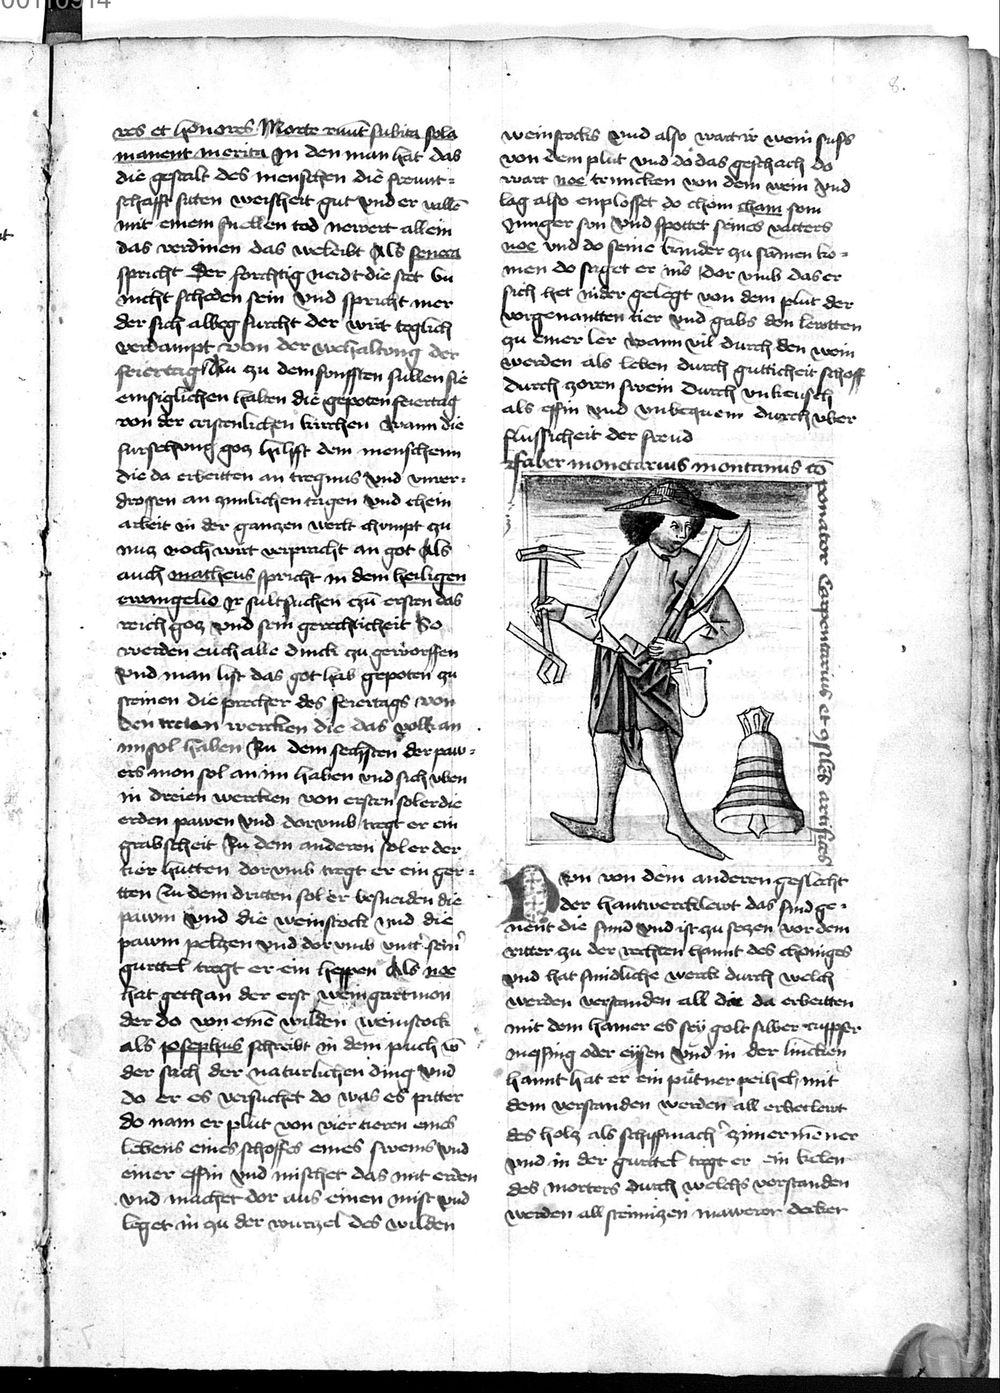 res et honores Morte ruunt subita sola
manent merita In den man hat das
die gestalt des menschen die freunt=
schafft siten weisheit gut vnd er vallē
mit einem snellen tod newert allein
das verdinen das weleibt Als seneca
spricht Der forchtig neidt die stet
nicht scheden sein Vnd spricht mer
der sich albeg furcht der wirt teglich
verdampt von der wehaltung der
feiertag Nu zu dem funfften sullen sie
einsiglichen halten die gepoten feiertag
von der cristenlichen kirchen Wann die
fursehung gotz hilfft dem menschenn
die da erbeitten an tregnus Vnd vnuer=
drossen an zimlichen tagen Vnd chein
arbeit in der gantzen werlt chumpt zu
nutz noch wirt verpracht an got Als
auch Matheus spricht in dem heiligen
ewangelio Ir sult suchen czu ersten das
reich gotz Vnd sein gerechticheit So
werden euch alle dinck zu geworffen
Vnd man list das got hab gepoten zu
steinen die precher des feiertags von
den wercken die das volk an
im sol haben Zu dem sechsten der paw=
ers mon sol an im haben vnd sich vben
in dreien wercken von ersten sol er die
erden pawen Vnd dorvmb tregt er ein
grabscheit Zu dem anderen sol er der
tier hutten dorvmb tregt er ein ger=
tten Zu dem dritten sol er besneiden die
pawm Vnd die weinstock Vnd die
pawm peltzen vnd dorvmb vntter sein
gurttel tregt er ein heppen Als noe
hat gethan der erst weingartmon
der do von einē wilden weinstock
als Josephus schreibt in dem puch vō
der sach der naturlichen ding Vnd
do er es versuchet do was es pitter
do nam er plut von vier tieren eines
lebens eines schoffes eines sweins Vnd
einer effin Vnd mischet das mit erden
vnd machet dor aus einen mist Vnd
leget in zu der wurtzel des wilden
weinstocks Vnd also wart ir wein suss
von dem plut vnd do das geschach do
wart noe truncken von dem wein Vnd
lag also enplosset do chom cham sein
Junger son Vnd spottet seines vatters
noe Vnd do seine kinder zu samen ko=
men do saget er ins dor vmb das er
sich het nider gelegt von dem plut der
vorgenantten tier Vnd gabs den lewtten
zu einer ler Wann vil durch den wein
werden als leben durch gutticheit schoff
durch zoren swein durch vnkeusch
als effin Vnd vnbequem durch vber
flussicheit der freud
Faber monetarius montanus cō
ponator Carpentarius et artifices
NVn von dem anderen geslecht
der hantwercklewt das sind ge=
nent die smid Vnd ist zu setzen vor dem
ritter zu der rechten hannt des chöniges
vnd hat smidliche werck durch welch
werden verstanden all die da erbeitten
mit dem hamer es sey golt silber kupffer
messing oder eysen Vnd in der lincken
hannt hat er ein pütner peihel mit
dem verstanden werden all erbetlewt
des holtz als schiffmacher zimermenner
vnd in der gurttel tregt er ein kelen
des morters durch welchs verstanden
werden all steinmitzen mawerer decker